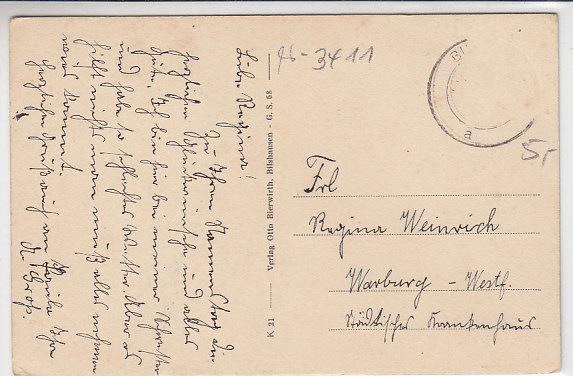 Liebe Regina!
Zu Ihrem Namenstag die
herzlichsten Glückwünsche und alles
Gute. Ich bin hier bei meiner Schwester
und habe so schlechtes Wetter. Aber es
hilft nichts man muß alles nehmen
wie es kommt.
Herzliche Grüße auch an
K 21 Verlag Otto Bierwirth, Bilshausen - G. S. 68
-3411
BI
a
5,-
Frl
Regina Weinrich
Warburg - Westf.
Städtisches Krankenhaus